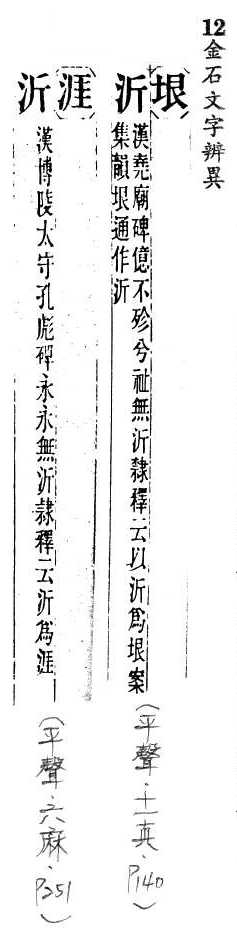 12金石文字辨異
垠
沂
漢堯廟碑億不殄兮祉無沂隸釋云以沂爲垠案
集韻垠通作沂
(平聲.十一真.P140)
涯
沂
漢博陵太守孔彪碑永永無沂隸釋云沂爲涯
(平聲.六麻.P251)